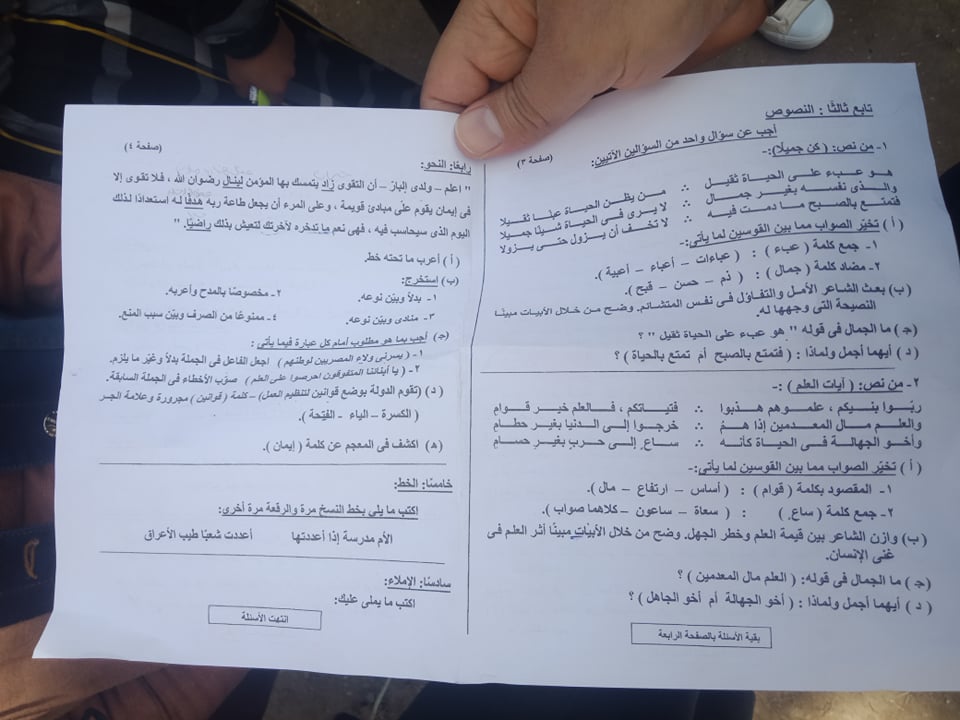 تابع ثالثًا : النصوص
أجب عن سؤال واحد من السؤالين الآتيين:
(صفحة ٣)
١- من نص: ( كن جميلا):-
هو عبء على الحياة ثقيل ∴ من يظن الحياة عبئا ثقيلا
والذى نفسه بغير جمال ∴ لا يرى فى الحياة شيئا جميلا
فتمتع بالصبح ما دمت فيه ∴ لا تخف أن يزول حتى يزولا
( أ ) تخيّر الصواب مما بين القوسين لما يأتى:-
١- جمع كلمة ( عبء ) : ( عباءات – أعباء – أعبية ).
٢- مضاد كلمة ( جمال ) : ( نم – حسن – قبح ).
(ب) بعث الشاعر الأمل والتفاؤل فى نفس المتشائم. وضح من خلال الأبيات مبينًا
النصيحة التى وجهها له.
(جـ) ما الجمال فى قوله " هو عبء على الحياة ثقيل " ؟
( د ) أيهما أجمل ولماذا : ( فتمتع بالصبح أم تمتع بالحياة ) ؟
٢- من نص: ( آيات العلم ) :-
ربّوا بنيكم ، علموهم هذبوا ∴ فتياتكم ، فالعلم خير قوام
والعلم مال المعدمين إذا همُ ∴ خرجوا إلى الدنيا بغير حطام
وأخو الجهالة فى الحياة كأنه ∴ ساع إلى حرب بغير حسام
( أ ) تخيّر الصواب مما بين القوسين لما يأتى:-
١- المقصود بكلمة ( قوام ) : ( أساس – ارتفاع – مال ).
٢- جمع كلمة ( ساع ) : ( سعاة – ساعون – كلاهما صواب ).
(ب) وازن الشاعر بين قيمة العلم وخطر الجهل. وضح من خلال الأبيات مبينًا أثر العلم فى
غنى الإنسان.
(جـ) ما الجمال فى قوله: ( العلم مال المعدمين ) ؟
( د ) أيهما أجمل ولماذا : ( أخو الجهالة أم أخو الجاهل ) ؟
بقية الأسئلة بالصفحة الرابعة
(صفحة ٤)
رابعًا: النحو:
" إعلم – ولدى إلباز – أن التقوى زاد يتمسك بها المؤمن لينال رضوان الله ، فلا تقوى إلا
فى إيمان يقوم على مبادئ قويمة ، وعلى المرء أن يجعل طاعة ربه هدفًا له استعدادًا لذلك
اليوم الذى سيحاسب فيه ، فهى نعم ما تدخره لآخرتك لتعيش بذلك راضيًا. "
( أ ) أعرب ما تحته خط.
(ب) إستخرج:
١- بدلاً وبيّن نوعه.
٢- مخصوصًا بالمدح وأعربه.
٣- منادى وبيّن نوعه.
٤- ممنوعًا من الصرف وبيّن سبب المنع.
(جـ) أجب بما هو مطلوب أمام كل عبارة فيما يأتى :
١- ( يسرنى ولاء المصريين لوطنهم ) اجعل الفاعل فى الجملة بدلاً وغيّر ما يلزم.
٢- ( يا أبنائنا المتفوقون احرصوا على العلم ) صوّب الأخطاء فى الجملة السابقة.
( د ) (تقوم الدولة بوضع قوانين لتنظيم العمل) – كلمة ( قوانين ) مجرورة وعلامة الجر
( الكسرة – الياء – الفتحة ).
(هـ) اكشف فى المعجم عن كلمة ( إيمان ).
خامسًا: الخط:
اكتب ما يلى بخط النسخ مرة والرقعة مرة أخرى:
الأم مدرسة إذا أعددتها أعددت شعبًا طيب الأعراق
سادسًا: الإملاء:
اكتب ما يملى عليك:
انتهت الأسئلة